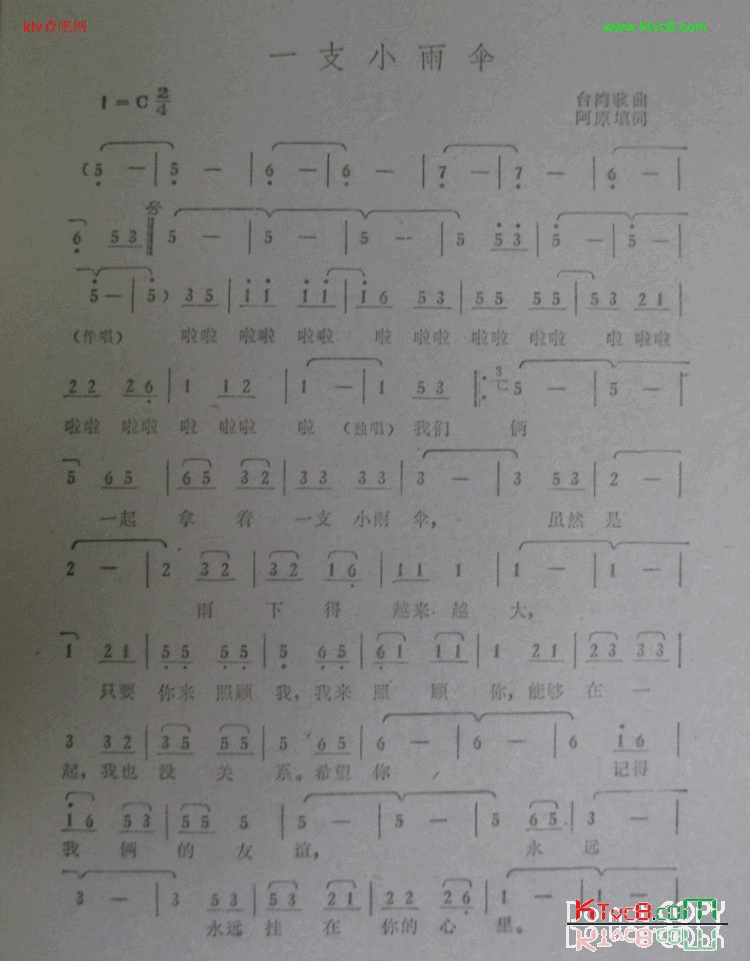 ktv音吧网
www.ktvc8.com
一支小雨伞
1=C 2/4
台湾歌曲
阿原填词
(5 — | 5 — | 6 — | 6 — | 7 — | 7 — | 6 — |
6 53 | 5 — | 5 — | 5 — | 5 53 | 5 — | 5 — |
5 — | 5) 35 | 11 11 | 16 53 | 55 55 | 53 21 |
(伴唱) 啦啦 啦啦 啦啦 啦 啦啦 啦啦 啦啦 啦 啦啦
22 26 | 1 12 | 1 — | 1 53 | 3 5 — | 5 — |
啦啦 啦啦 啦 啦啦 啦 (独唱) 我们 俩
5 65 | 65 32 | 33 53 | 3 — | 3 53 | 2 — |
一起 拿着 一支 小雨 伞, 虽然 是
2 — | 2 32 | 32 16 | 11 1 | 1 — | 1 — |
雨 下 得 越来 越 大,
1 21 | 55 55 | 5 65 | 61 11 | 1 21 | 23 33 |
只要 你来 照顾 我,我来 照 顾 你,能够 在 一
3 32 | 35 55 | 5 65 | 6 — | 6 — | 6 16 |
起,我也 没 关 系。希望 你 记得
16 53 | 55 5 | 5 — | 5 — | 5 65 | 3 — |
我 俩 的 友 谊, 永 远
3 — | 3 53 | 53 21 | 22 26 | 1 — | 1 — |
永远 挂 在 你的 心 里。
KTvc8.com
DO NOT COPY